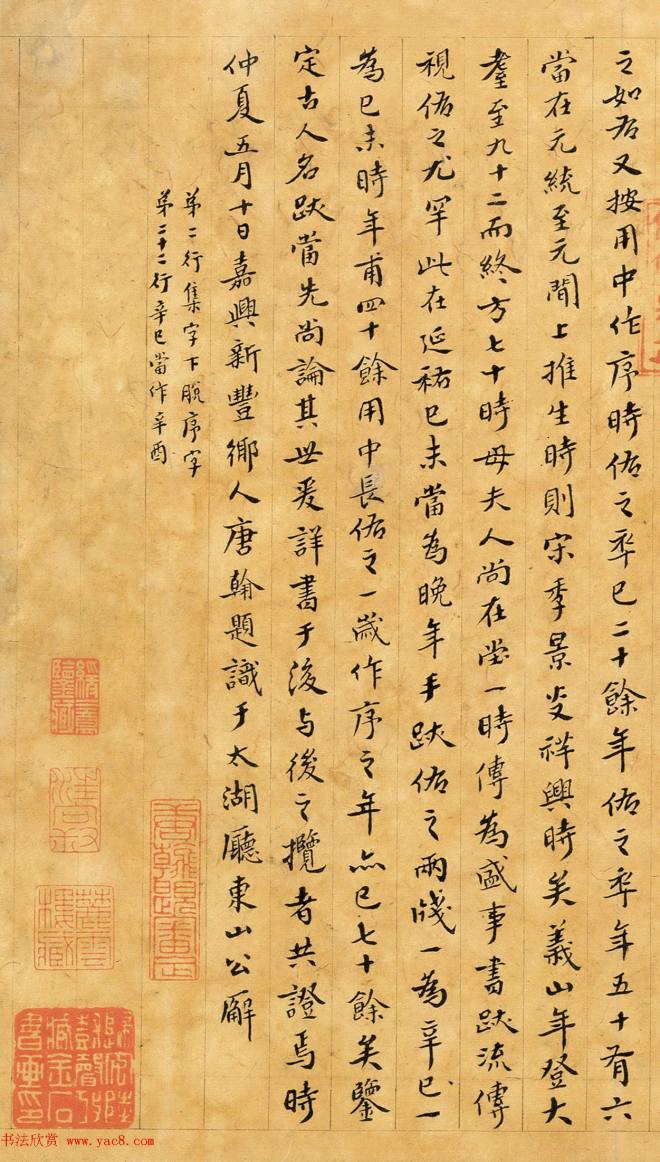 之如君又按用中作序時佑之卒已二十餘年佑之卒年五十有六
當在元統至元間上推生時則宋季景炎祥興時矣義山年登大
耋至九十二而終方七十時母夫人尚在堂一時傳為盛事書跋流傳
視佑之尤罕此在延祐己未當為晚年手跋佑之兩牋一為辛巳一
為己未時年甫四十餘用中長佑之一歲作序之年亦已七十餘矣鑒
定古人名跋當先尚論其世爰詳書于後与後之攬者共證焉時
仲夏五月十日嘉興新豐鄉人唐翰題識于太湖廳東山公廨
弟二行集字下脫序字
弟二十二行辛巳當作辛酉
唐翰題審定
麓雲樓藏
書法欣赏 www.yac8.com